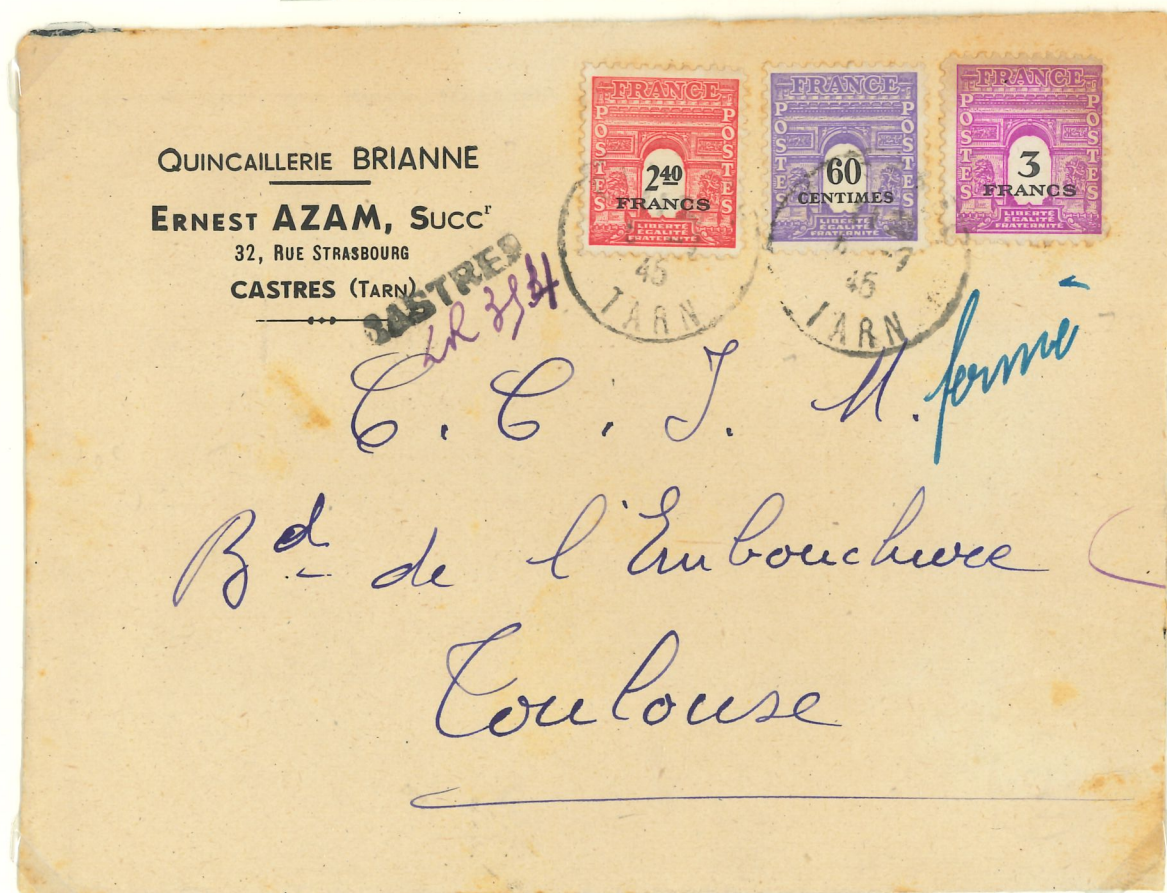 QUINCAILLERIE BRIANNE
ERNEST AZAM, SUCCr
32, RUE STRASBOURG
CASTRES (TARN)
FRANCE
POSTES
POSTES
2 40
FRANCS
LIBERTÉ
ÉGALITÉ
FRATERNITÉ
FRANCE
POSTES
POSTES
60
CENTIMES
LIBERTÉ
ÉGALITÉ
FRATERNITÉ
FRANCE
POSTES
POSTES
3
FRANCS
LIBERTÉ
ÉGALITÉ
FRATERNITÉ
45
TARN
45
TARN
CASTRES
LR 394
C. C. I. M. fermé
Bd de l'Embouchure
Toulouse